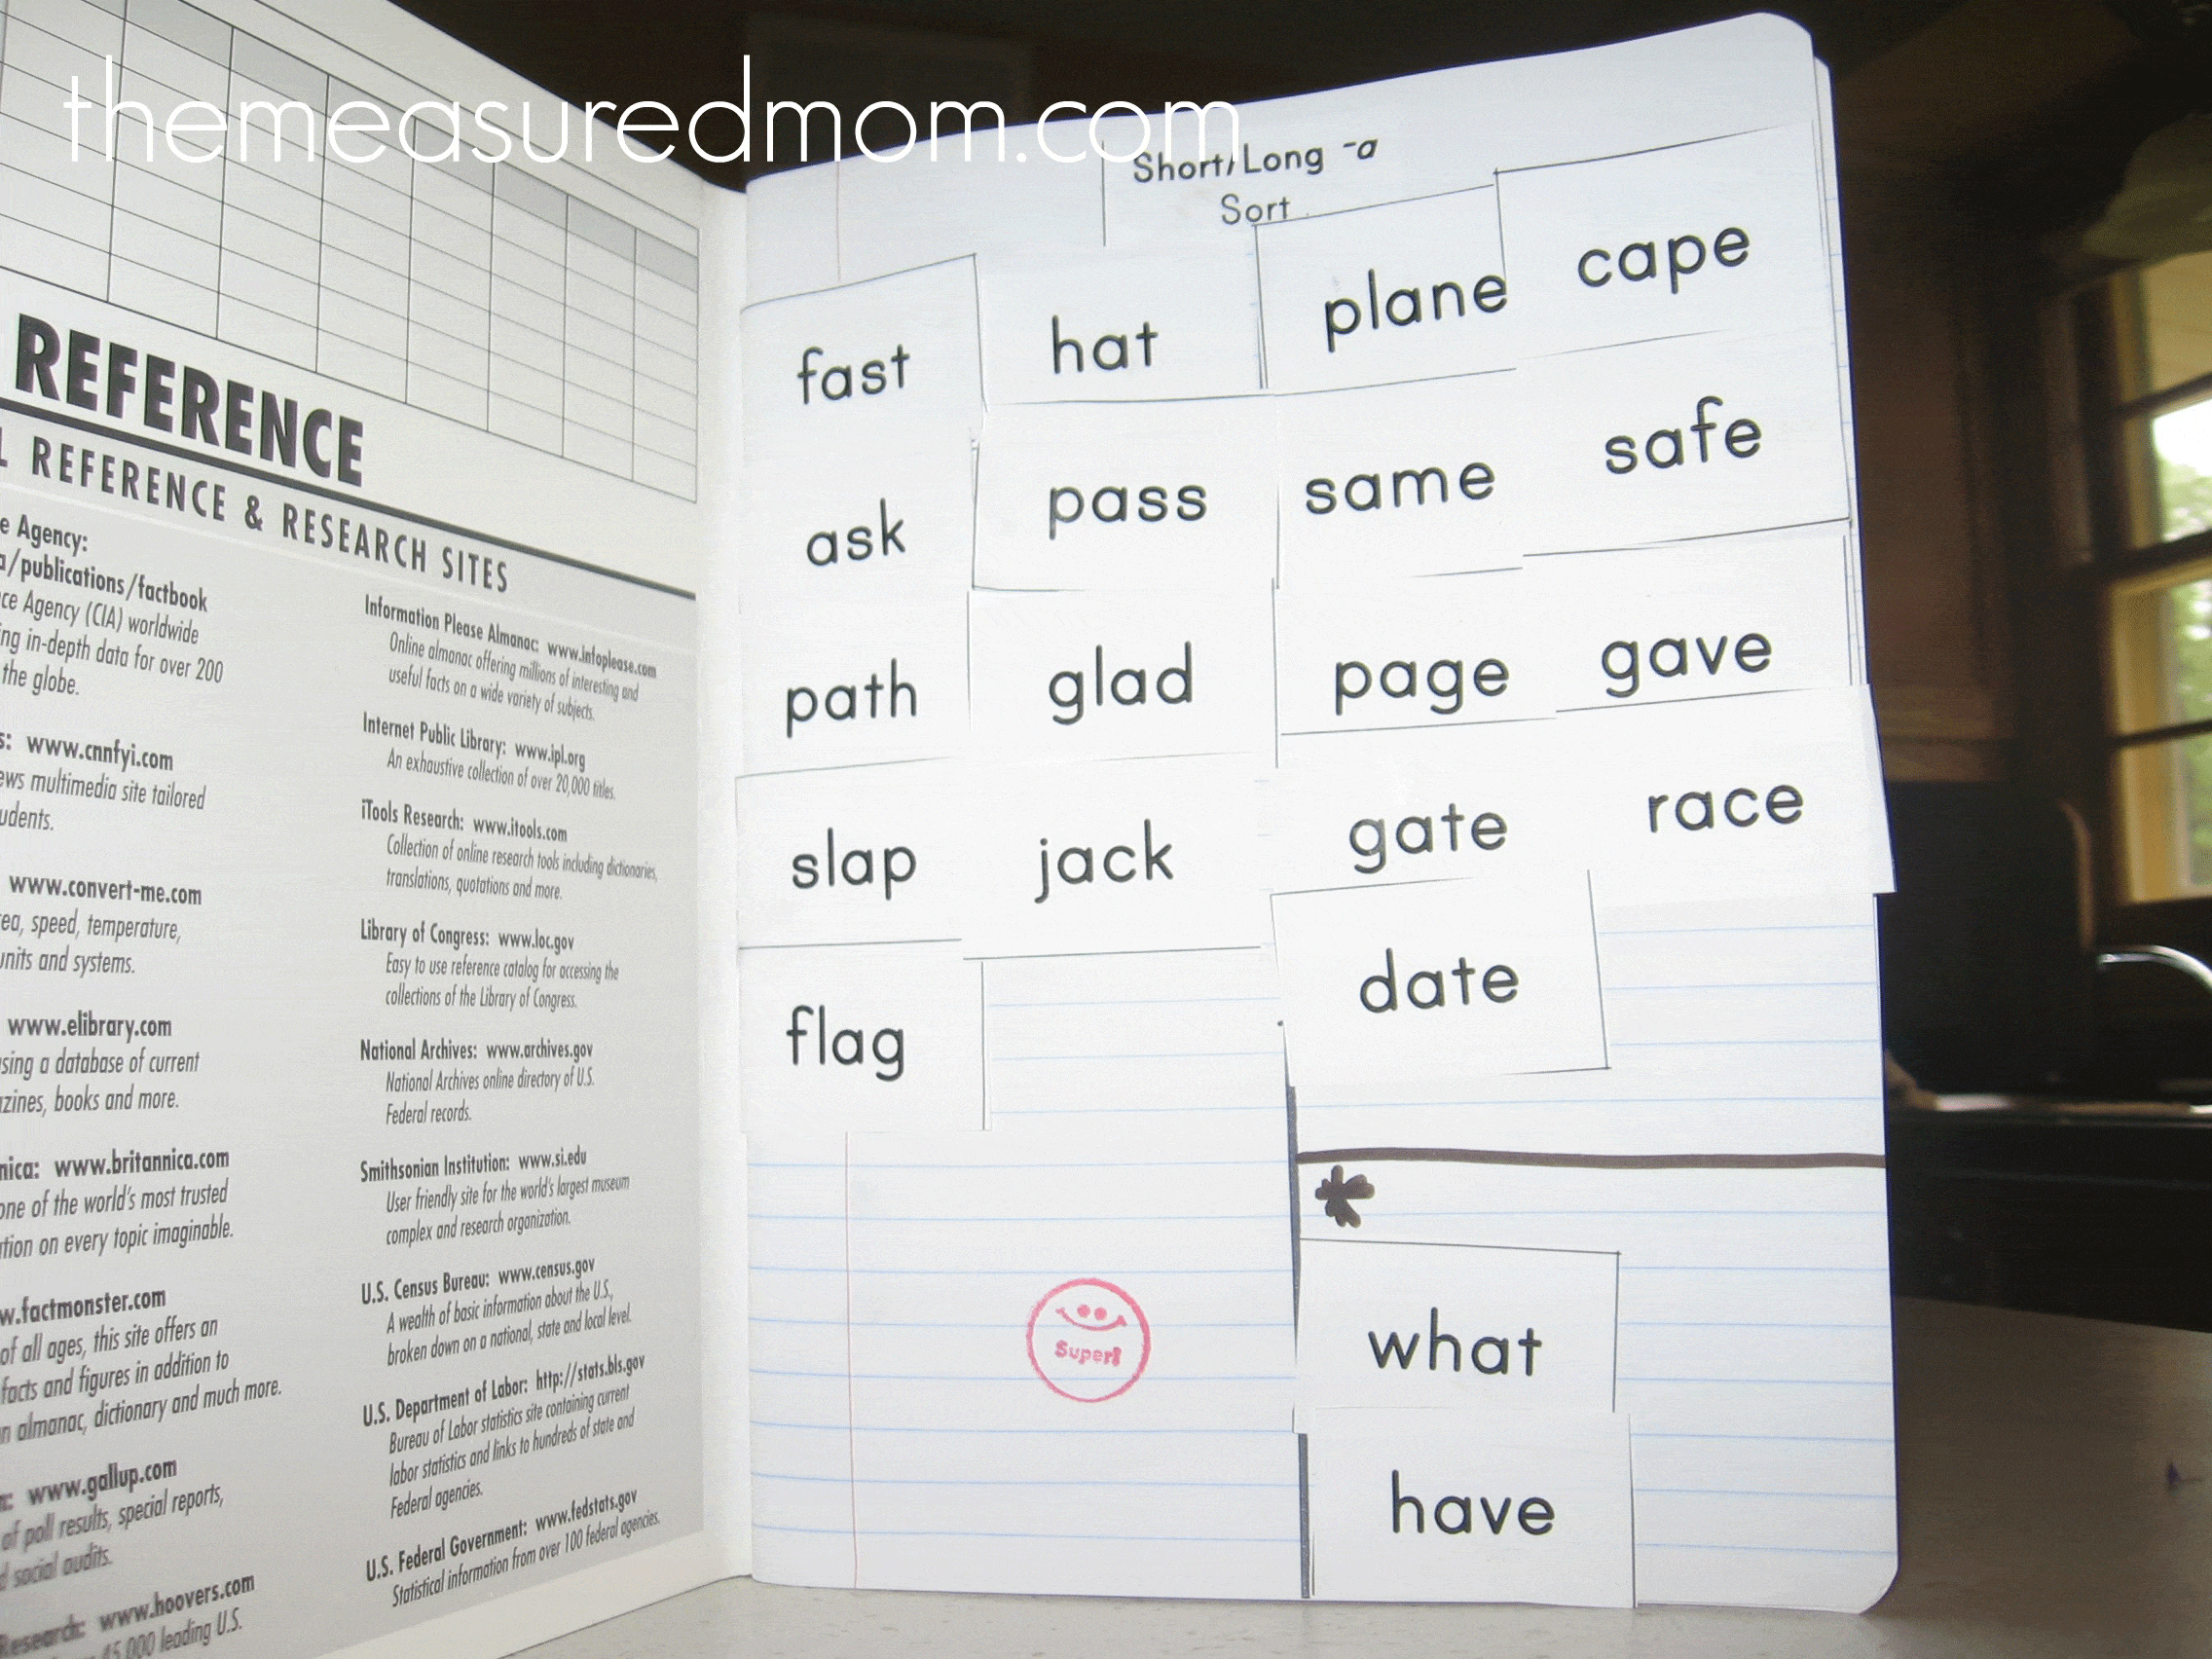 themeasuredmom.com
REFERENCE
REFERENCE & RESEARCH SITES
e Agency:
a/publications/factbook
ce Agency (CIA) worldwide
ng in-depth data for over 200
the globe.
www.cnnfyi.com
ews multimedia site tailored
udents.
www.convert-me.com
ea, speed, temperature,
units and systems.
www.elibrary.com
using a database of current
zines, books and more.
nica: www.britannica.com
one of the world's most trusted
tion on every topic imaginable.
w.factmonster.com
of all ages, this site offers an
facts and figures in addition to
n almanac, dictionary and much more.
www.gallup.com
of poll results, special reports,
d social audits.
Research: www.hoovers.com
45,000 leading U.S.
Information Please Almanac: www.infoplease.com
Online almanac offering millions of interesting and
useful facts on a wide variety of subjects.
Internet Public Library: www.ipl.org
An exhaustive collection of over 20,000 titles.
iTools Research: www.itools.com
Collection of online research tools including dictionaries,
translations, quotations and more.
Library of Congress: www.loc.gov
Easy to use reference catalog for accessing the
collections of the Library of Congress.
National Archives: www.archives.gov
National Archives online directory of U.S.
Federal records.
Smithsonian Institution: www.si.edu
User friendly site for the world's largest museum
complex and research organization.
U.S. Census Bureau: www.census.gov
A wealth of basic information about the U.S.,
broken down on a national, state and local level.
U.S. Department of Labor: http://stats.bls.gov
Bureau of Labor statistics site containing current
labor statistics and links to hundreds of state and
Federal agencies.
U.S. Federal Government: www.fedstats.gov
Statistical information from over 100 federal agencies.
Short/Long -a
Sort
fast hat plane cape
ask pass same safe
path glad page gave
slap jack gate race
flag date
*
Super!
what
have